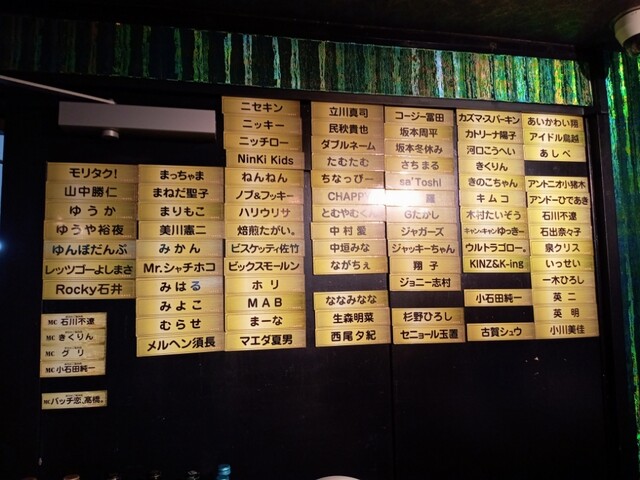 あいかわい翔
アイドル鳥越
あしべ
アントニオ小猪木
アンドーひであき
石川不遼
石出奈々子
泉クリス
いっせい
一木ひろし
英二
英明
小川美佳
カズマ・スパーキン
カトリーナ陽子
河口こうへい
きくりん
きのこちゃん
キムコ
木村たいぞう
キャン×キャンゆっきー
ウルトラゴロー。
KINZ&K-ing
小石田純一
古賀シュウ
コージー冨田
坂本周平
坂本冬休み
さちまる
sa'Toshi
Gたかし
ジャガーズ
ジャッキーちゃん
翔子
ジョニー志村
杉野ひろし
セニョール玉置
立川真司
民秋貴也
ダブルネーム
たむたむ
ちなっぴー
CHAPPY
とむやむくん
中村愛
中垣みな
ながちぇ
ななみなな
生森明菜
西尾夕紀
ニセキン
ニッキー
ニッチロー
NinKi Kids
ねんねん
ノブ&フッキー
ハリウリサ
焙煎たがい。
ビスケッティ佐竹
ビックスモールン
ホリ
MAB
まーな
マエダ夏男
まっちゃま
まねだ聖子
まりもこ
美川憲二
みかん
Mr.シャチホコ
みはる
みよこ
むらせ
メルヘン須長
モリタク!
山中勝仁
ゆうか
ゆうや裕夜
ゆんぼだんぷ
レッツゴーよしまさ
Rocky石井
MC 石川不遼
MC きくりん
MC グリ
MC 小石田純一
MC バッチ恋、高橋。